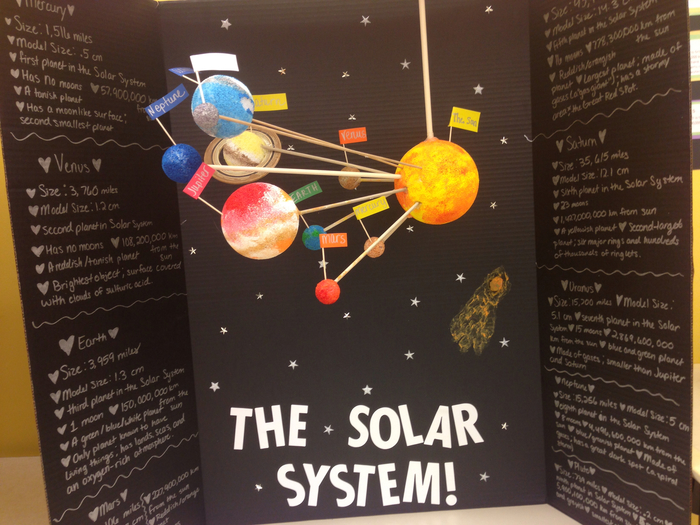 Mercury
♥ Size: 1,516 miles
♥ Model Size: .5 cm
♥ first planet in the Solar System
♥ Has no moons ♥ 57,900,000 km
♥ A tanish planet
♥ Has a moonlike surface;
second smallest planet
♥ Venus ♥
♥ Size: 3,760 miles
♥ Model Size: 1.2 cm
♥ second planet in Solar System
♥ Has no moons ♥ 108,200,000 km from the sun
♥ A reddish/tanish planet
♥ Brightest object; surface covered
with clouds of sulfuric acid.
♥ Earth ♥
♥ Size: 3,959 miles
♥ Model Size: 1.3 cm
♥ third planet in the Solar System
♥ 1 moon ♥ 150,000,000 km from the sun
♥ A green/blue/white planet
♥ Only planet known to have
living things; has lands, seas, and
an oxygen-rich atmosphere.
♥ Mars
227,900,000 km
Neptune
Venus
The Sun
Jupiter
EARTH
Mars
THE SOLAR
SYSTEM!
♥ Model Size: 14.3 cm
♥ fifth planet in the Solar System
♥ 778,300,000 km from
the sun
♥ Reddish/orangish
planet ♥ largest planet; made of
gases; has a stormy
area; the Great Red Spot.
♥ Saturn ♥
♥ Size: 35,615 miles
♥ Model Size: 12.1 cm
♥ sixth planet in the Solar System
♥ 23 moons
♥ 1,427,000,000 km from sun
♥ A yellowish planet ♥ Second-largest
planet; six major rings and hundreds
of thousands of ringlets.
♥ Uranus ♥
♥ Size: 15,700 miles ♥ Model Size:
5.1 cm ♥ seventh planet in the Solar
System ♥ 15 moons ♥ 2,869,600,000
km from the sun ♥ blue and green planet
♥ Made of gases; smaller than Jupiter
and Saturn
♥ Neptune ♥
♥ Size: 15,256 miles ♥ Model Size: 5 cm
♥ eighth planet in the Solar System
km from the sun
♥ Made of
gases; has a great dark spot
♥ Pluto ♥